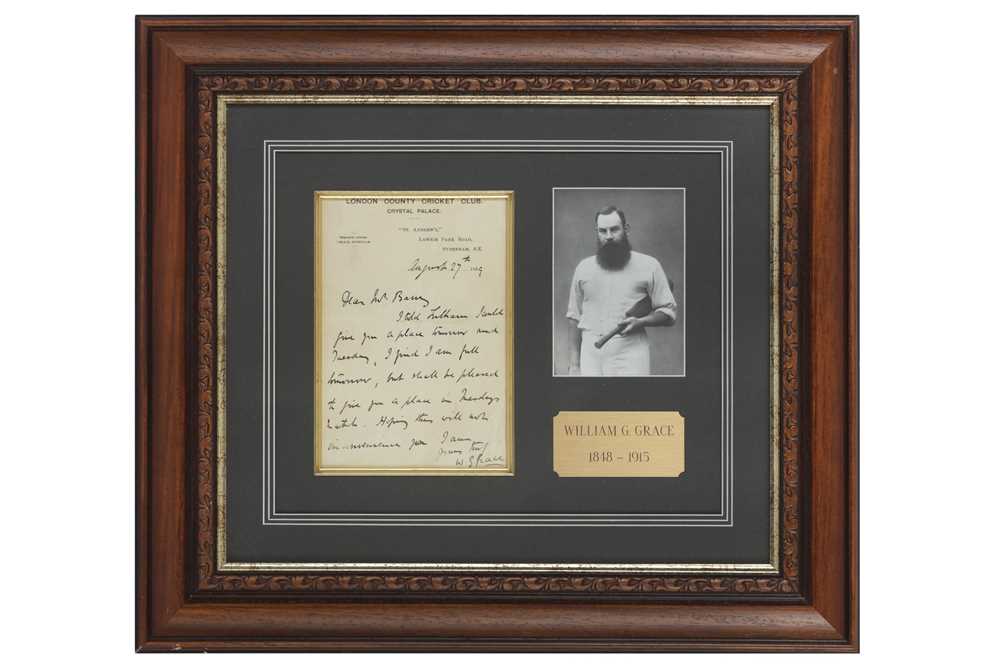 LONDON COUNTY CRICKET CLUB.
CRYSTAL PALACE.
"ST. ANDREW'S,"
LAWRIE PARK ROAD,
SYDENHAM, S.E.
August 27th
Dear Mr
I told I could
give you a place tomorrow and
Tuesday, I find I am full
tomorrow, but shall be pleased
to give you a place in Tuesdays
match. Hoping this will not
inconvenience you I am
yours truly
W. G. Grace
WILLIAM G. GRACE
1848 – 1915